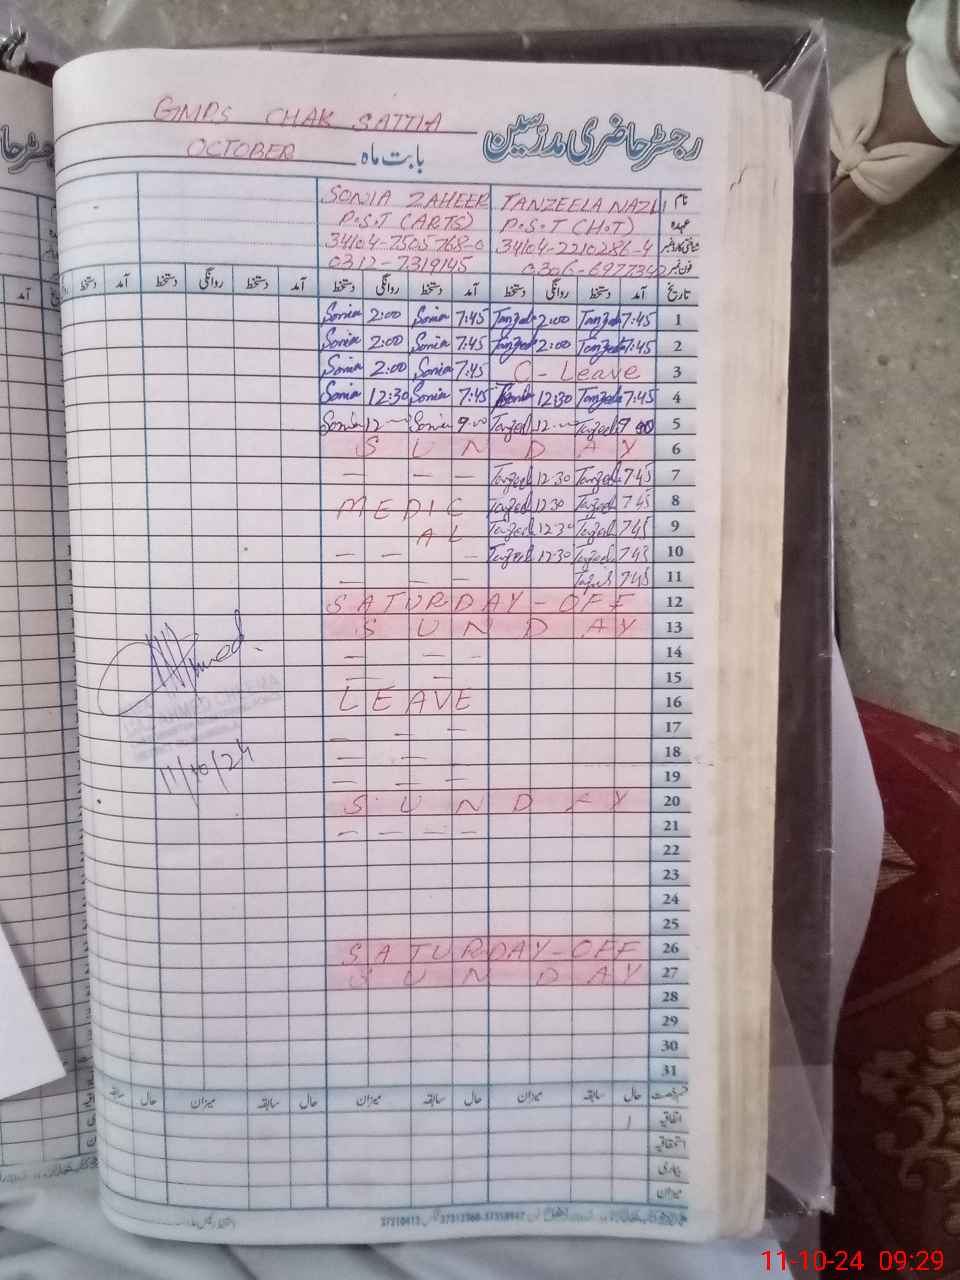 GMPS CHAK SATTIA
رجسٹر حاضری مدرسین
OCTOBER بابت ماہ
نام TANZEELA NAZLI SONIA ZAHEER
عہدہ P.S.T (H.T) P.S.T (ARTS)
34104-2210286-4 34104-7505768-0
فون نمبر 0306-6977342 0312-7319145
تاریخ آمد دستخط روانگی دستخط آمد دستخط روانگی دستخط آمد دستخط روانگی دستخط آمد دستخط
1 7:45 Tanzeel 2:00 Tanzeel 7:45 Sonia 2:00 Sonia
2 7:45 Tanzeel 2:00 Tanzeel 7:45 Sonia 2:00 Sonia
3 C - Leave 7:45 Sonia 2:00 Sonia
4 7:45 Tanzeel 12:30 7:45 Sonia 12:30 Sonia
5 Tanzeel 12 Tanzeel 9:00 Sonia 12 Sonia
6 SUNDAY
7 7:45 Tanzeel 12:30 Tanzeel — — —
8 7:45 Tanzeel 12:30 Tanzeel MEDIC
9 7:45 Tanzeel 12:30 Tanzeel AL
10 7:45 Tanzeel 12:30 Tanzeel — — —
11 7:45 — — —
12 SATURDAY-OFF
13 SUNDAY
14 — — —
15 — —
16 LEAVE
17 — — —
18 — — —
19 — — —
20 SUNDAY
21 — — — —
22
23
24
25
26 SATURDAY-OFF
27 SUNDAY
28
29
30
31
11/10/24
حال سابقہ میزان حال سابقہ میزان حال سابقہ میزان حال سابقہ
اتفاقیہ 1
استحقاقیہ
بیماری
میزان
11-10-24 09:29